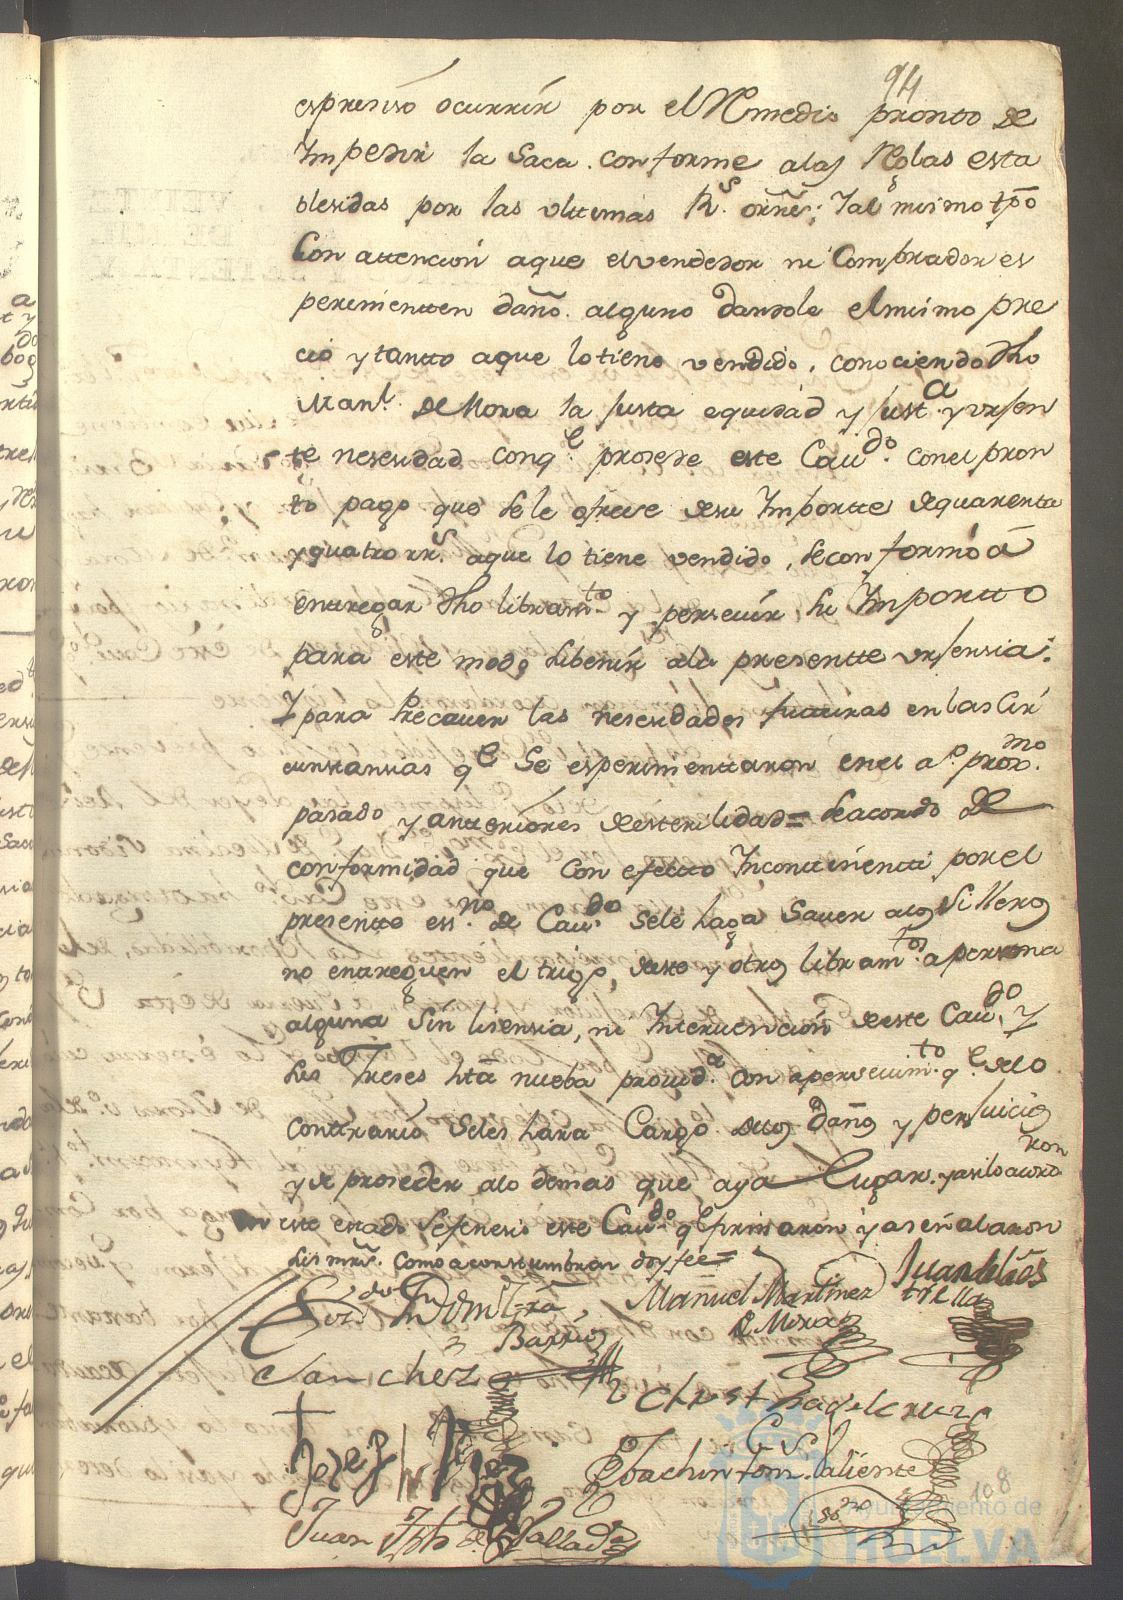 94
espresiso ocurrir por el Remedio pronto de
Impedir la saca conforme a las Reglas esta
blesidas por las ultimas Rs. orñes; y al mismo tpõ
Con attencion aque el vendedor ni Comprador es
perimentten daño alguno dandole el mismo pre
cio y tantto aque lo tiene vendido, conociendo dho
Manl. de Mora la justa equidad y justa. y vrjen
te nesesidad conqe. prosede este Caudo. con el pron
to pago que se le ofrese de su Importte de quarentta
y quatro rrs. aque lo tiene vendido, se conformó â
entregar dho libramto. y persevir su Importto
para este modo subenir ala presentte vrjensia.
Y para Precauer las nesesidades futturas en las Cir
cunstansias qe se esperimenttaron en el ao. proxmo.
pasado y antteriores de esterilidad = se acordo de
conformidad que con efectto Incontinentti por el
presentto essno. de Caudo. sele haga sauer alos silleros
no entreguen el trigo, de este y otros libramtos. a persona
alguna sin lisensia, ni Interuencion de este Caudo. y
sus Treses hta nueba prouida. con apersevimto. qe. de lo
conttrario seles hara Cargo delos daños y perjuicios
y de proseder alo demas que aya Lugar. y asilo acorda
ron
este estado se fenesio este Caudo. qe firmaron y aseñalaron
sus mrs. como acostumbran doy fee =
Domo.
Barrios
Manuel Martinez
de Mora
Juan de los
trella
Sanchez
Christ de la cruz
Josef
Joachin Valiente
ssno
Juan de Vallad
108
Ayuntamiento de
HUELVA